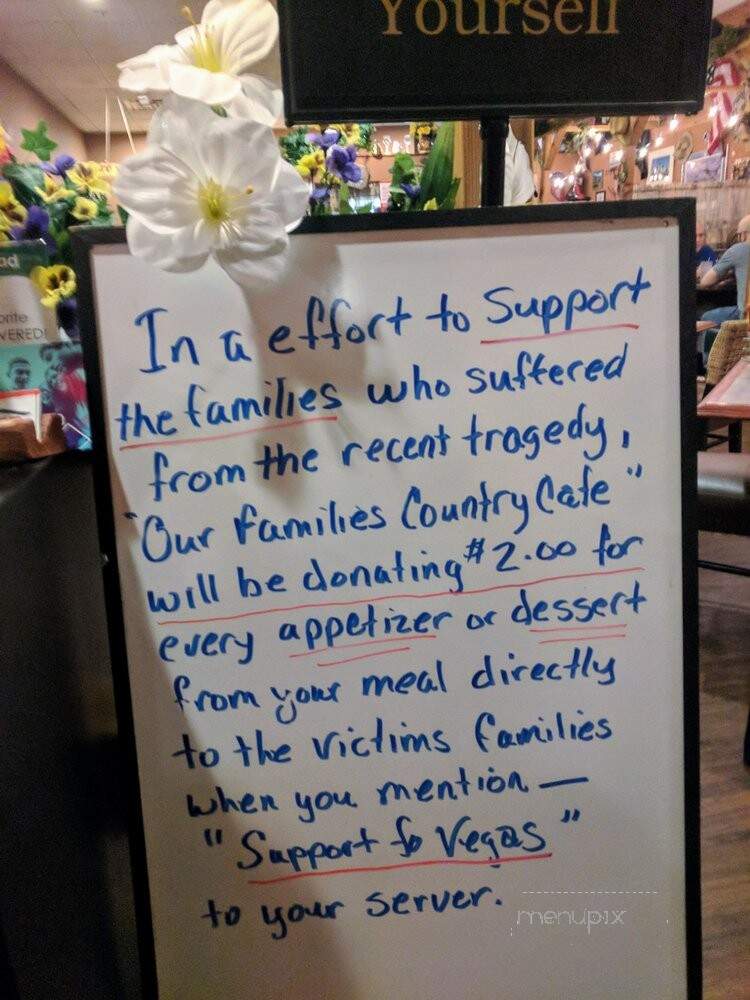 Yourself
ad
orite
VERED!
In a effort to Support
the families who suffered
from the recent tragedy,
"Our families Country Cafe"
will be donating $2.00 for
every appetizer or dessert
from your meal directly
to the victims families
when you mention —
"Support fo Vegas"
to your server.
menupix